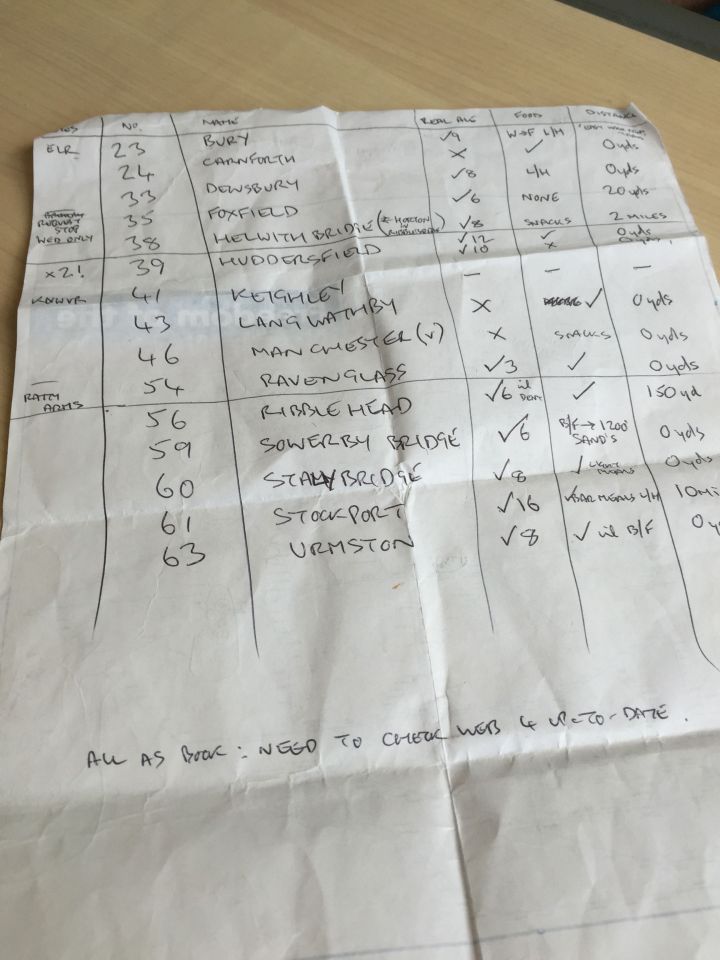 NO. NAME REAL ALE FOOD DISTANCE
ELR 23 BURY ✓9 W→F L/H 0yds
24 CARNFORTH × ✓
33 DEWSBURY ✓8 L/H 0yds
REQUEST STOP WED ONLY 35 FOXFIELD ✓6 NONE 20 yds
38 HELWITH BRIDGE (≈ HORTON IN RIBBLESDALE) ✓8 SNACKS 2 MILES
x2! 39 HUDDERSFIELD ✓12 ✓ 0yds
✓10 × 0yds
K&WVR 41 KEIGHLEY — — —
43 LANGWATHBY × ✓ 0yds
46 MANCHESTER (V) × SNACKS 0yds
RATTY ARMS 54 RAVENGLASS ✓3 ✓ 0yds
56 RIBBLEHEAD ✓6 ✓ 150yd
59 SOWERBY BRIDGE ✓6 B/F→1200 SAND'S 0yds
60 STALYBRIDGE ✓8 ✓ LIGHT MEALS 0yds
61 STOCKPORT ✓16 ✓BAR MEALS L/H 10mi
63 URMSTON ✓8 ✓ B/F 0y
ALL AS BOOK: NEED TO CHECK WEB 4 UP-TO-DATE.